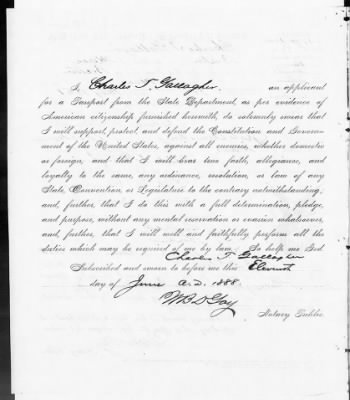 I, Charles T. Gallagher, an applicant
for a Passport from the State Department, as per evidence of
American citizenship furnished herewith, do solemnly swear that
I will support, protect, and defend the Constitution and Govern-
ment of the United States, against all enemies, whether domestic
or foreign, and that I will bear true faith, allegiance, and
loyalty to the same, any ordinance, resolution, or law of any
State, Convention, or Legislature to the contrary notwithstanding;
and, further, that I do this with a full determination, pledge,
and purpose, without any mental reservation or evasion whatsoever,
and, further, that I will well and faithfully perform all the
duties which may be required of me by law. So help me God.
Charles T Gallagher
Subscribed and sworn to before me this Eleventh
day of June A.D. 1888.
Notary Public.